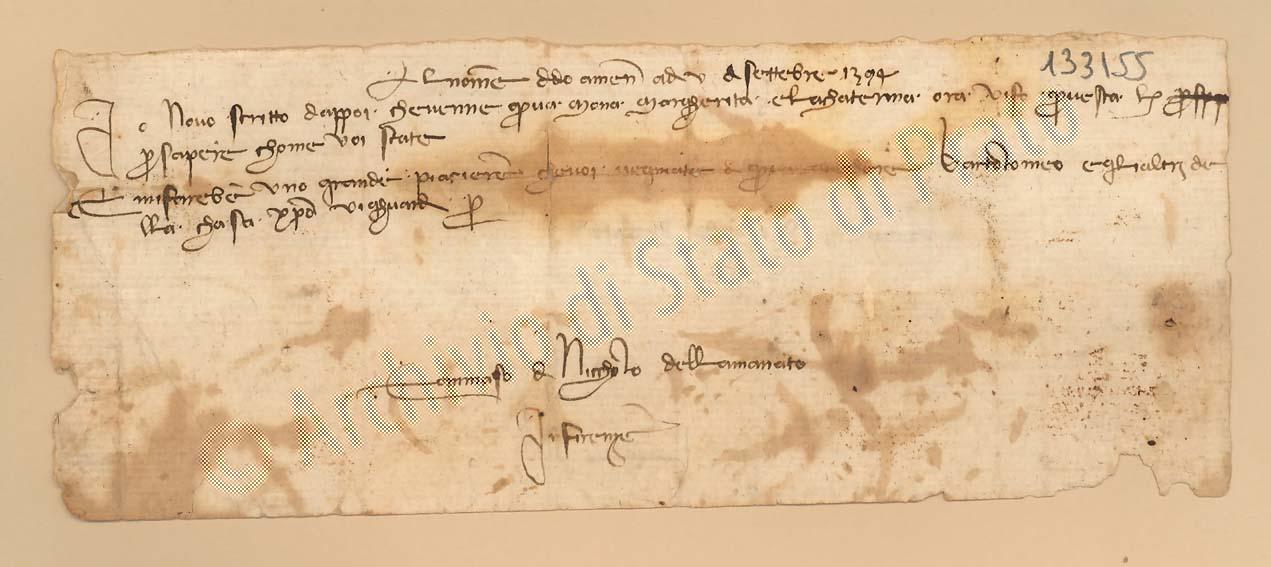 133155
Al nome ddo amen adi v di settebre 1394
Io Novo scritto dappoi chevenne qua mona margherita e la chaterina ora vi fo questa
p sapere chome voi state
E mi farebe uno grande piaciere chevoi vegniate a Bartolomeo e gli altri de
lla chasa xpo vi ghuardi p
Tommaso di Nicholo dell amanato
In firenze
© Archivio di Stato di Prato